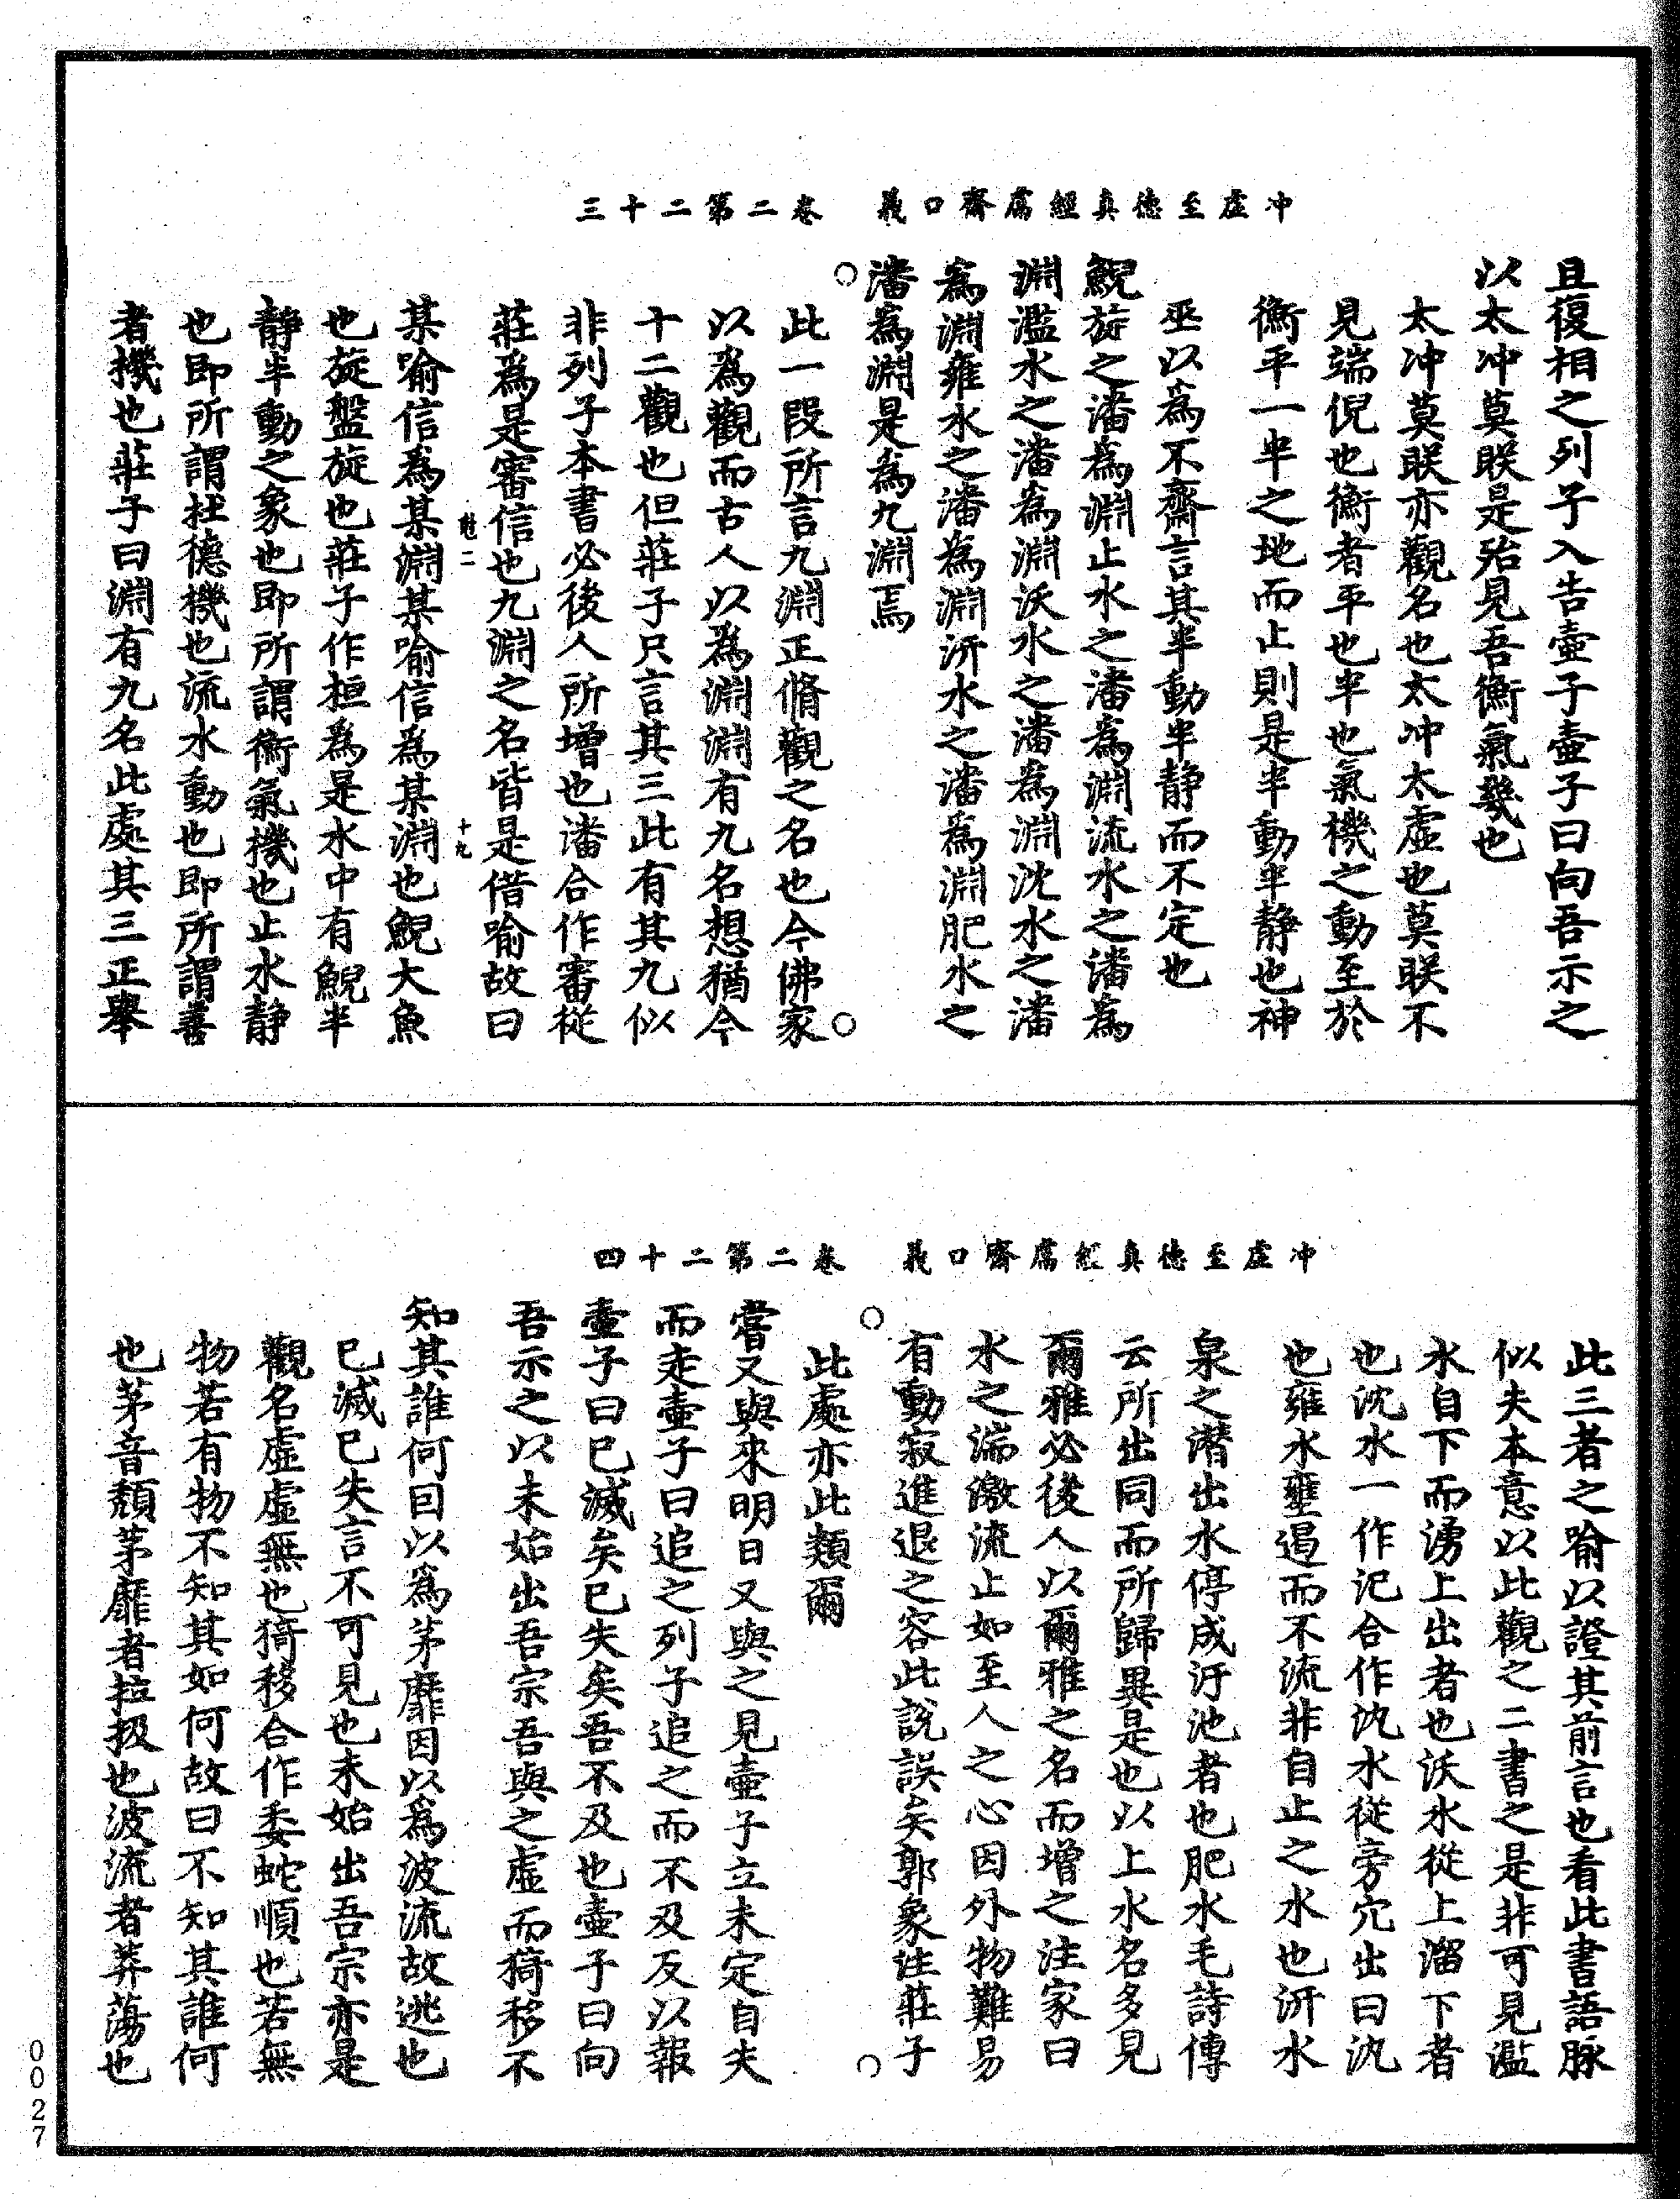 冲虛至德真經鬳齋口義　卷二第二十三
且復相之列子入告壺子壺子曰向吾示之
以太冲莫眹是殆見吾衡氣幾也
太冲莫眹亦觀名也太冲太虛也莫眹不
見端倪也衡者平也半也氣機之動至於
衡平一半之地而止則是半動半靜也神
巫以為不齋言其半動半靜而不定也
鯢旋之潘為淵止水之潘為淵流水之潘為
淵濫水之潘為淵沃水之潘為淵沈水之潘
為淵雍水之潘為淵汧水之潘為淵肥水之
潘為淵是為九淵焉
此一段所言九淵正脩觀之名也今佛家
以為觀而古人以為淵淵有九名想猶今
十二觀也但莊子只言其三此有其九似
非列子本書必後人所增也潘合作審從
莊為是審信也九淵之名皆是借喻故曰
尅二　十九
某喻信為某淵某喻信為某淵也鯢大魚
也旋盤旋也莊子作桓為是水中有鯢半
靜半動之象也即所謂衡氣機也止水靜
也即所謂杜德機也流水動也即所謂善
者機也莊子曰淵有九名此處其三正舉
冲虛至德真經鬳齋口義　卷二第二十四
此三者之喻以證其前言也看此書語脉
似夫本意以此觀之二書之是非可見濫
水自下而湧上出者也沃水從上溜下者
也沈水一作氾合作沈水從旁穴出曰氿
也雍水壅遏而不流非自止之水也汧水
泉之潛出水停成汙池者也肥水毛詩傳
云所出同而所歸異是也以上水名多見
爾雅必後人以爾雅之名而增之注家曰
水之湍激流止如至人之心因外物難易
有動寂進退之容此說誤矣郭象註莊子
此處亦此類爾
嘗又與來明日又與之見壺子立未定自失
而走壺子曰追之列子追之而不及反以報
壺子曰已滅矣已失矣吾不及也壺子曰向
吾示之以未始出吾宗吾與之虛而猗移不
知其誰何因以為茅靡因以為波流故逃也
已滅已失言不可見也未始出吾宗亦是
觀名虛虛無也猗移合作委蛇順也若無
物若有物不知其如何故曰不知其誰何
也茅音頹茅靡者拉扱也波流者莽蕩也
0027